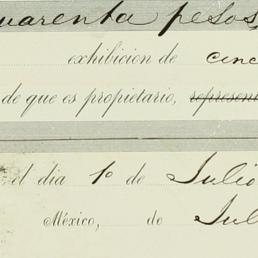 uarenta pesos
exhibicion de cinc
de que es propietario, represent
el dia 1º de Julio
México, de Jul